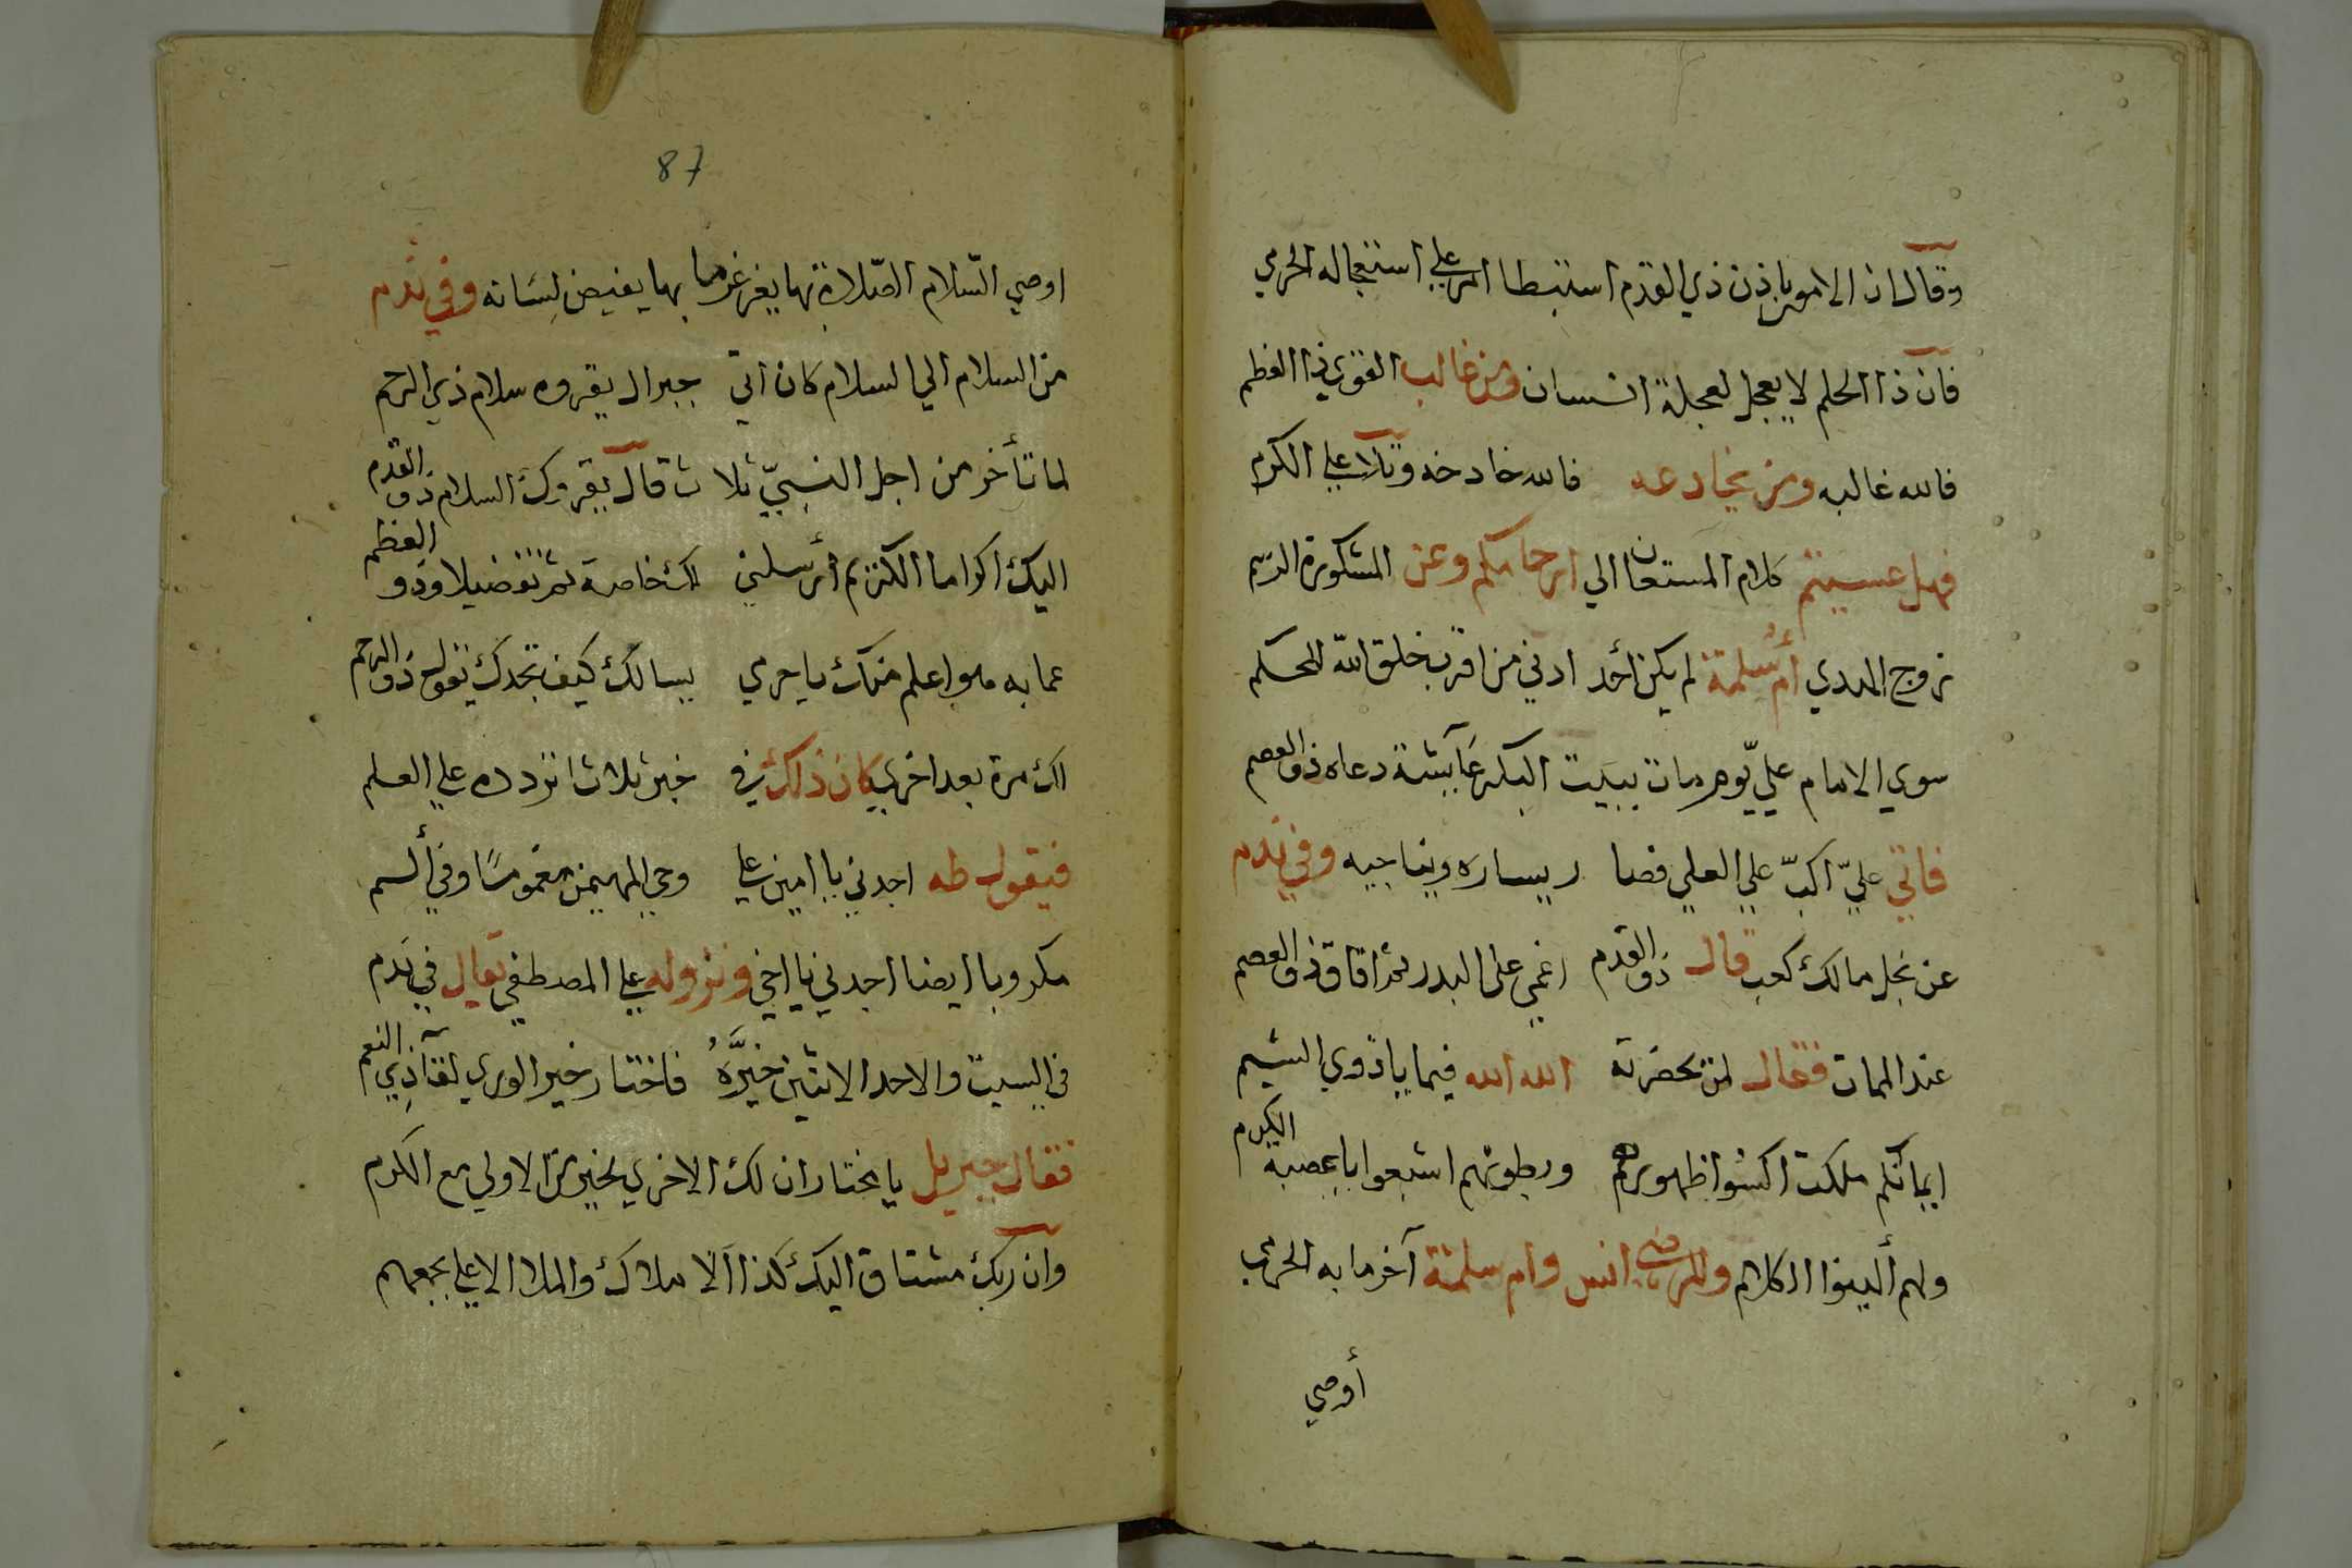 وقال ان الامور باذن ذي القدم استبطا امر علي استعجاله الحرمي
فان ذا الحلم لا يعجل لعجلة انسان ومن غالب القوي ذا العظم
فالله غالبه ومن يخادعه فالله خادخه وتلا علي الكرم
فهل عسيتم كلام المستعان الي ارحامكم وعن المشكورة الدسم
زوج الهدي أم سلمة لم يكن أحد ادني من اقرب خلق الله للحكم
سوي الامام علي يوم مات ببيت البكر عآيشة دعاه ذو العصم
فاتي عليّ اكبّ علي العلي فصا ر يساره ويناجيه وفي يدم
عن نجل مالك كعب قال ذو القدم اغمي علي البدر ثم افاق ذو العصم
عند الممات فقال لمن بحضرته الله الله فيما يا ذوي الشيم
ايمانكم ملكت اكسوا ظهورهم وبطونهم اشبعوا يا عصبة الكرم
ولهم ألينوا الكلام وللرضي انس وام سلمة آخر ما به الحرمي
أوصي
87
اوصي السّلام الصّلاة بها يغرغرها بها يفيض لسانه وفي يدم
من السلام الي السلام كان اتي جبرال يقروه سلام ذي الرحم
لما تأخر من اجل النبيّ ثلا ث قال يقروك السلام ذو القدم
اليك اكراما الكرم أرسلني لك خاصة ثم تفضيلا وذو العظم
عما به هو اعلم منك يا حرمي يسالك كيف تجدك يقول ذو الرحم
لك مرة بعد اخري كان ذاك في خير ثلاث اتردده علي العلم
فيقول طه اجدني يا امين علي وحي المهيمن مغموسًا وفي ألسم
مكروبا ايضا اجدني يا اخي ونزوله علي المصطفي يقال في يدم
في السبت والاحد الاثنين خيّرهُ فاختار خير الوري لقآ ذي النعم
فقال جبريل يا مختار ان لك الاخري لخير من الاولي مع الكرم
وان ربك مشتاق اليك كذا ألا ملاك والملا الاعلي بجمعهم